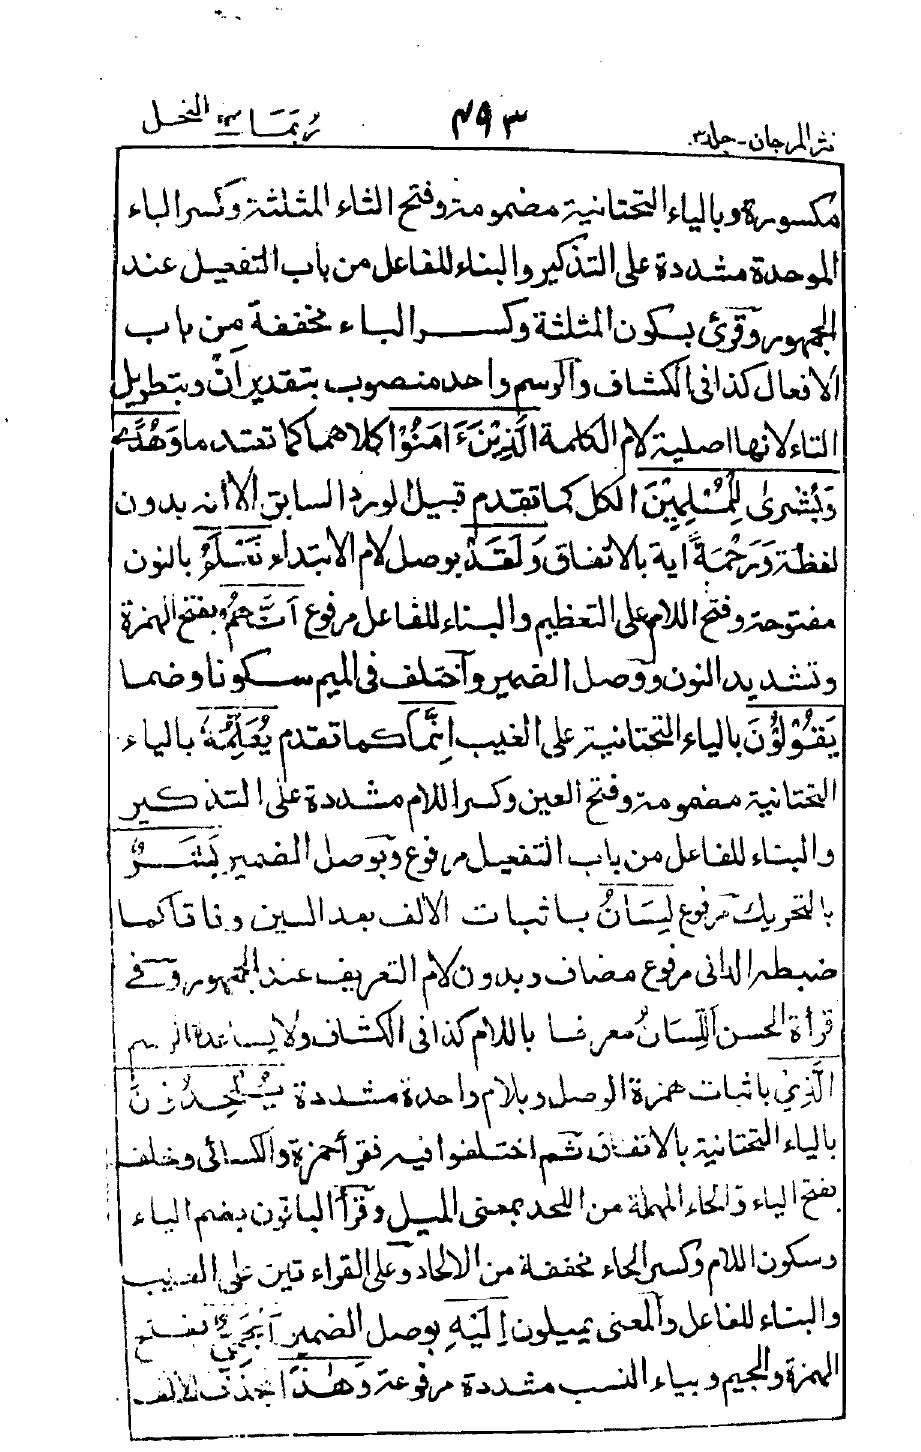 نثر المرجان - جلد ٣
٤٩٣
ربما ١٤ النحل
مكسورة وبالياء التحتانية مضمومة وفتح الثاء المثلثة وكسر الباء
الموحدة مشددة على التذكير والبناء للفاعل من باب التفعيل عند
الجمهور وقرئ بسكون المثلثة وكسر الباء مخففة من باب
الافعال كذا فى الكشاف والرسم واحد منصوب بتقدير ان وبتطويل
التاء لانها اصلية لام الكلمة الَّذِيْنَ ءَامَنُوْا كلاهما كما تقدما وَهُدًى
وَبُشْرىٰ لِلْمُسْلِمِيْنَ الكل كما تقدم قبيل الورد السابق الا انه بدون
لفظة وَرَحْمَةً اية بالاتفاق وَلَقَدْ بوصل لام الابتداء نَعْلَمُ بالنون
مفتوحة وفتح اللام على التعظيم والبناء للفاعل مرفوع اَنَّهُمْ بفتح الهمزة
وتشديد النون ووصل الضمير واختلف فى الميم سكونا وضما
يَقُوْلُوْنَ بالياء التحتانية على الغيب اِنَّمَا كما تقدم يُعَلِّمُهٗ بالياء
التحتانية مضمومة وفتح العين وكسر اللام مشددة على التذكير
والبناء للفاعل من باب التفعيل مرفوع وبوصل الضمير بَشَرٌ
بالتحريك مرفوع لِسَانُ باثبات الالف بعد السين وفاقا كما
ضبطه الدانى مرفوع مضاف وبدون لام التعريف عند الجمهور وفى
قرأة الحسن اَللِّسَانُ معرفا باللام كذا فى الكشاف ولا يساعده الرسم
الَّذِيْ باثبات همزة الوصل وبلام واحدة مشددة يُلْحِدُوْنَ
بالياء التحتانية بالاتفاق ثم اختلفوا فيه فقرأ حمزة والكسائى وخلف
بفتح الياء والحاء المهملة من اللحد بمعنى الميل وقرأ الباقون بضم الياء
وسكون اللام وكسر الحاء مخففة من الالحاد وعلى القراءتين على الغيب
والبناء للفاعل والمعنى يميلون اِلَيْهِ بوصل الضمير اَعْجَمِيٌّ بفتح
الهمزة والجيم وبياء النسب مشددة مرفوعة وَهٰذَا بحذف الالف